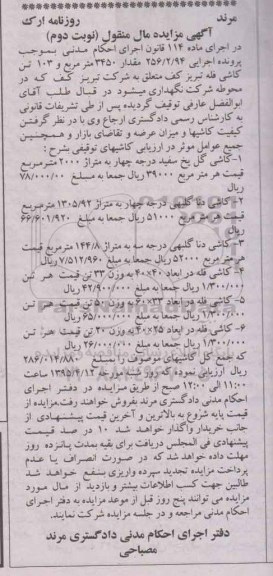 مرند
روزنامه ارک
آگهی مزایده مال منقول (نوبت دوم)
در اجرای ماده ۱۱۴ قانون اجرای احکام مدنی بموجب
پرونده اجرایی ۲۵۶/۲/۹۴ مقدار ۳۴۵۰ متر مربع و ۱۰۳ تن
کاشی قله تبریز کف متعلق به شرکت تبریز کف که در
محوطه شرکت نگهداری میشود در قبال طلب آقای
ابوالفضل عارفی توقیف گردیده پس از طی تشریفات قانونی
به کارشناس رسمی دادگستری ارجاع وی با در نظر گرفتن
کیفیت کاشیها و میزان عرضه و تقاضای بازار و همچنین
جمیع عوامل موثر در ارزیابی کاشیهای توقیفی بشرح :
۱-کاشی گل یخ سفید درجه چهار به متراژ ۲۰۰۰ مترمربع
قیمت هر متر مربع ۳۹۰۰۰ ریال جمعا به مبلغ ۷۸/۰۰۰/۰۰۰
ریال
۲- کاشی دنا گلبهی درجه چهار به متراژ ۱۳۰۵/۹۲ مترمربع
قیمت هر متر مربع ۵۱۰۰۰ ریال جمعا به مبلغ ۶۶/۶۰۱/۹۲۰
ریال
۳-کاشی دنا گلبهی درجه سه به متراژ ۱۴۴/۸ مترمربع قیمت
هر متر مربع ۵۲۰۰۰ ریال جمعا به مبلغ ۷/۵۱۲/۹۶۰ ریال
۴- کاشی قله در ابعاد ۴۰×۴۰ به وزن ۳۳ تن قیمت هر تن
۱/۳۰۰/۰۰۰ ریال جمعا به مبلغ ۴۲/۹۰۰/۰۰۰ ریال
۵- کاشی قله در ابعاد ۳۳×۶۰ به وزن ۵۰ تن قیمت هر تن
۱/۳۰۰/۰۰۰ ریال جمعا به مبلغ ۶۵/۰۰۰/۰۰۰ ریال
۶- کاشی قله در ابعاد ۲۵×۴۰ به وزن ۲۰ تن قیمت هر تن
۱/۳۰۰/۰۰۰ ریال جمعا به مبلغ ۲۶/۰۰۰/۰۰۰ ریال
که جمع کل کاشیهای موصوف را بمبلغ ۲۸۶/۰۱۴/۸۸۰
ریال ارزیابی نموده که روز شنبه مورخه ۱۳۹۵/۴/۱۲ ساعت
۱۱:۰۰ الی ۱۲:۰۰ صبح از طریق مزایده در دفتر اجرای
احکام مدنی دادگستری مرند بفروش خواهند رفت.مزایده از
قیمت پایه شروع به بالاترین و آخرین قیمت پیشنهادی از
جانب خریدار واگذار خواهد شد ۱۰ در صد قیمت
پیشنهادی فی المجلس دریافت برای بقیه بمدت پانزده روز
مهلت داده خواهد شد که در صورت انصراف یا عدم
پرداخت مزایده تجدید سپرده واریزی بنفع خواهد شد
طالبین جهت کسب اطلاعات بیشتر و بازدید از مال مورد
مزایده می توانند پنج روز قبل از موعد مزایده به دفتر اجرای
احکام مدنی مراجعه و در جلسه مزایده شرکت نمایند.
دفتر اجرای احکام مدنی دادگستری مرند
مصباحی